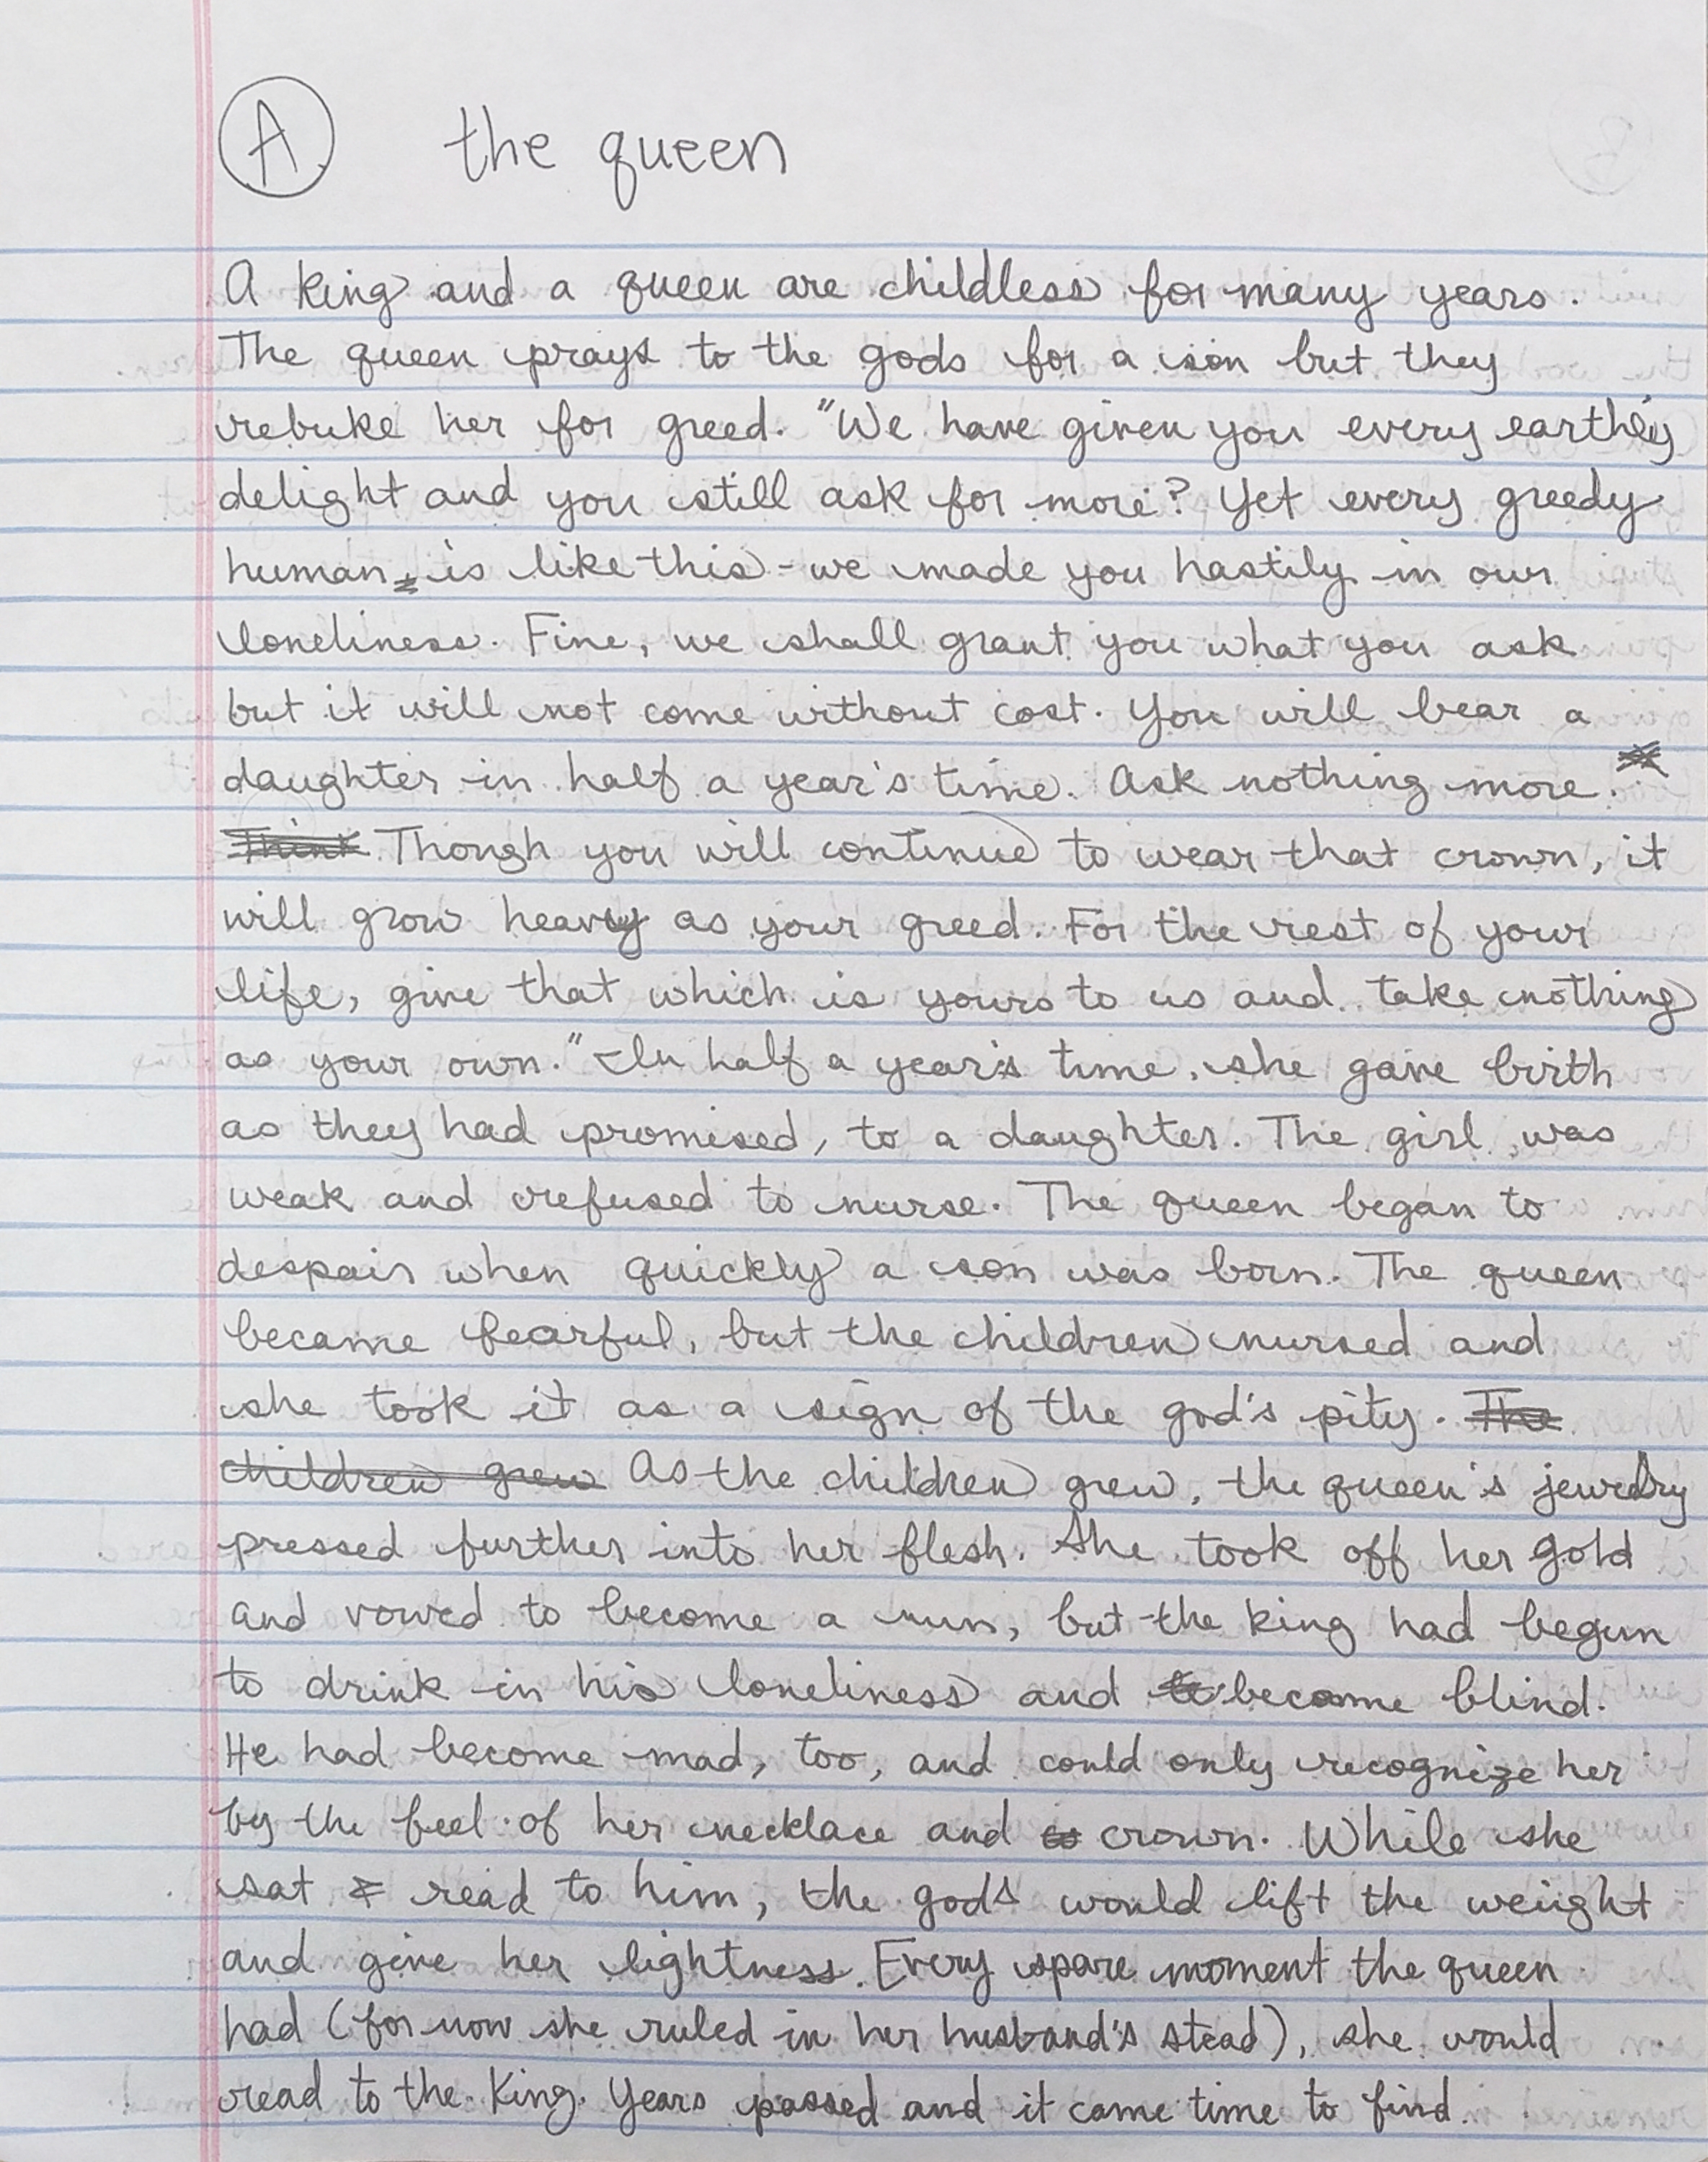 A the queen
A king and a queen are childless for many years.
The queen prays to the gods for a son but they
rebuke her for greed. "We have given you every earthly
delight and you still ask for more? Yet every greedy
human is like this - we made you hastily in our
loneliness. Fine, we shall grant you what you ask
but it will not come without cost. You will bear a
daughter in half a year's time. Ask nothing more.
Think Though you will continue to wear that crown, it
will grow heavy as your greed. For the rest of your
life, give that which is yours to us and take nothing
as your own." In half a year's time, she gave birth
as they had promised, to a daughter. The girl was
weak and refused to nurse. The queen began to
despair when quickly a son was born. The queen
became fearful, but the children nursed and
she took it as a sign of the god's pity. The
children grew As the children grew, the queen's jewelry
pressed further into her flesh. She took off her gold
and vowed to become a nun, but the king had begun
to drink in his loneliness and became blind.
He had become mad, too, and could only recognize her
by the feel of her necklace and crown. While she
sat & read to him, the gods would lift the weight
and give her lightness. Every spare moment the queen
had (for now she ruled in her husband's stead), she would
read to the King. Years passed and it came time to find